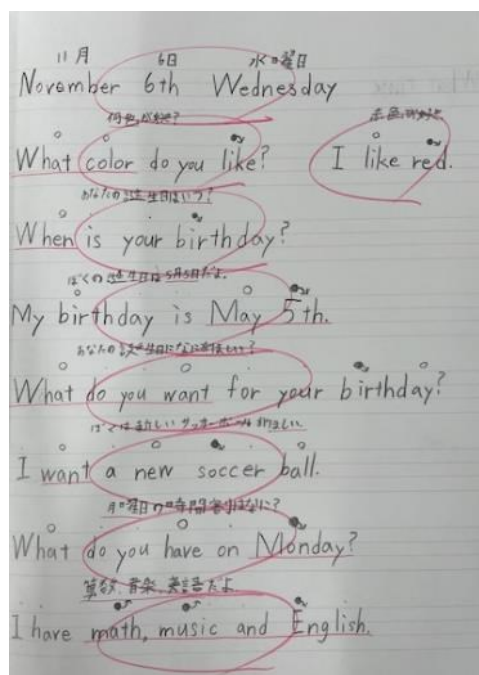 11月 6日 水曜日
November 6th Wednesday
何色が好き?
What color do you like? I like red.
あなたの誕生日はいつ?
When is your birthday?
ぼくの誕生日は5月5日だよ.
My birthday is May 5th.
あなたの誕生日になにがほしい?
What do you want for your birthday?
ぼくは新しいサッカーボールがほしい.
I want a new soccer ball.
月曜日の時間割はなに?
What do you have on Monday?
算数, 音楽, 英語だよ.
I have math, music and English.